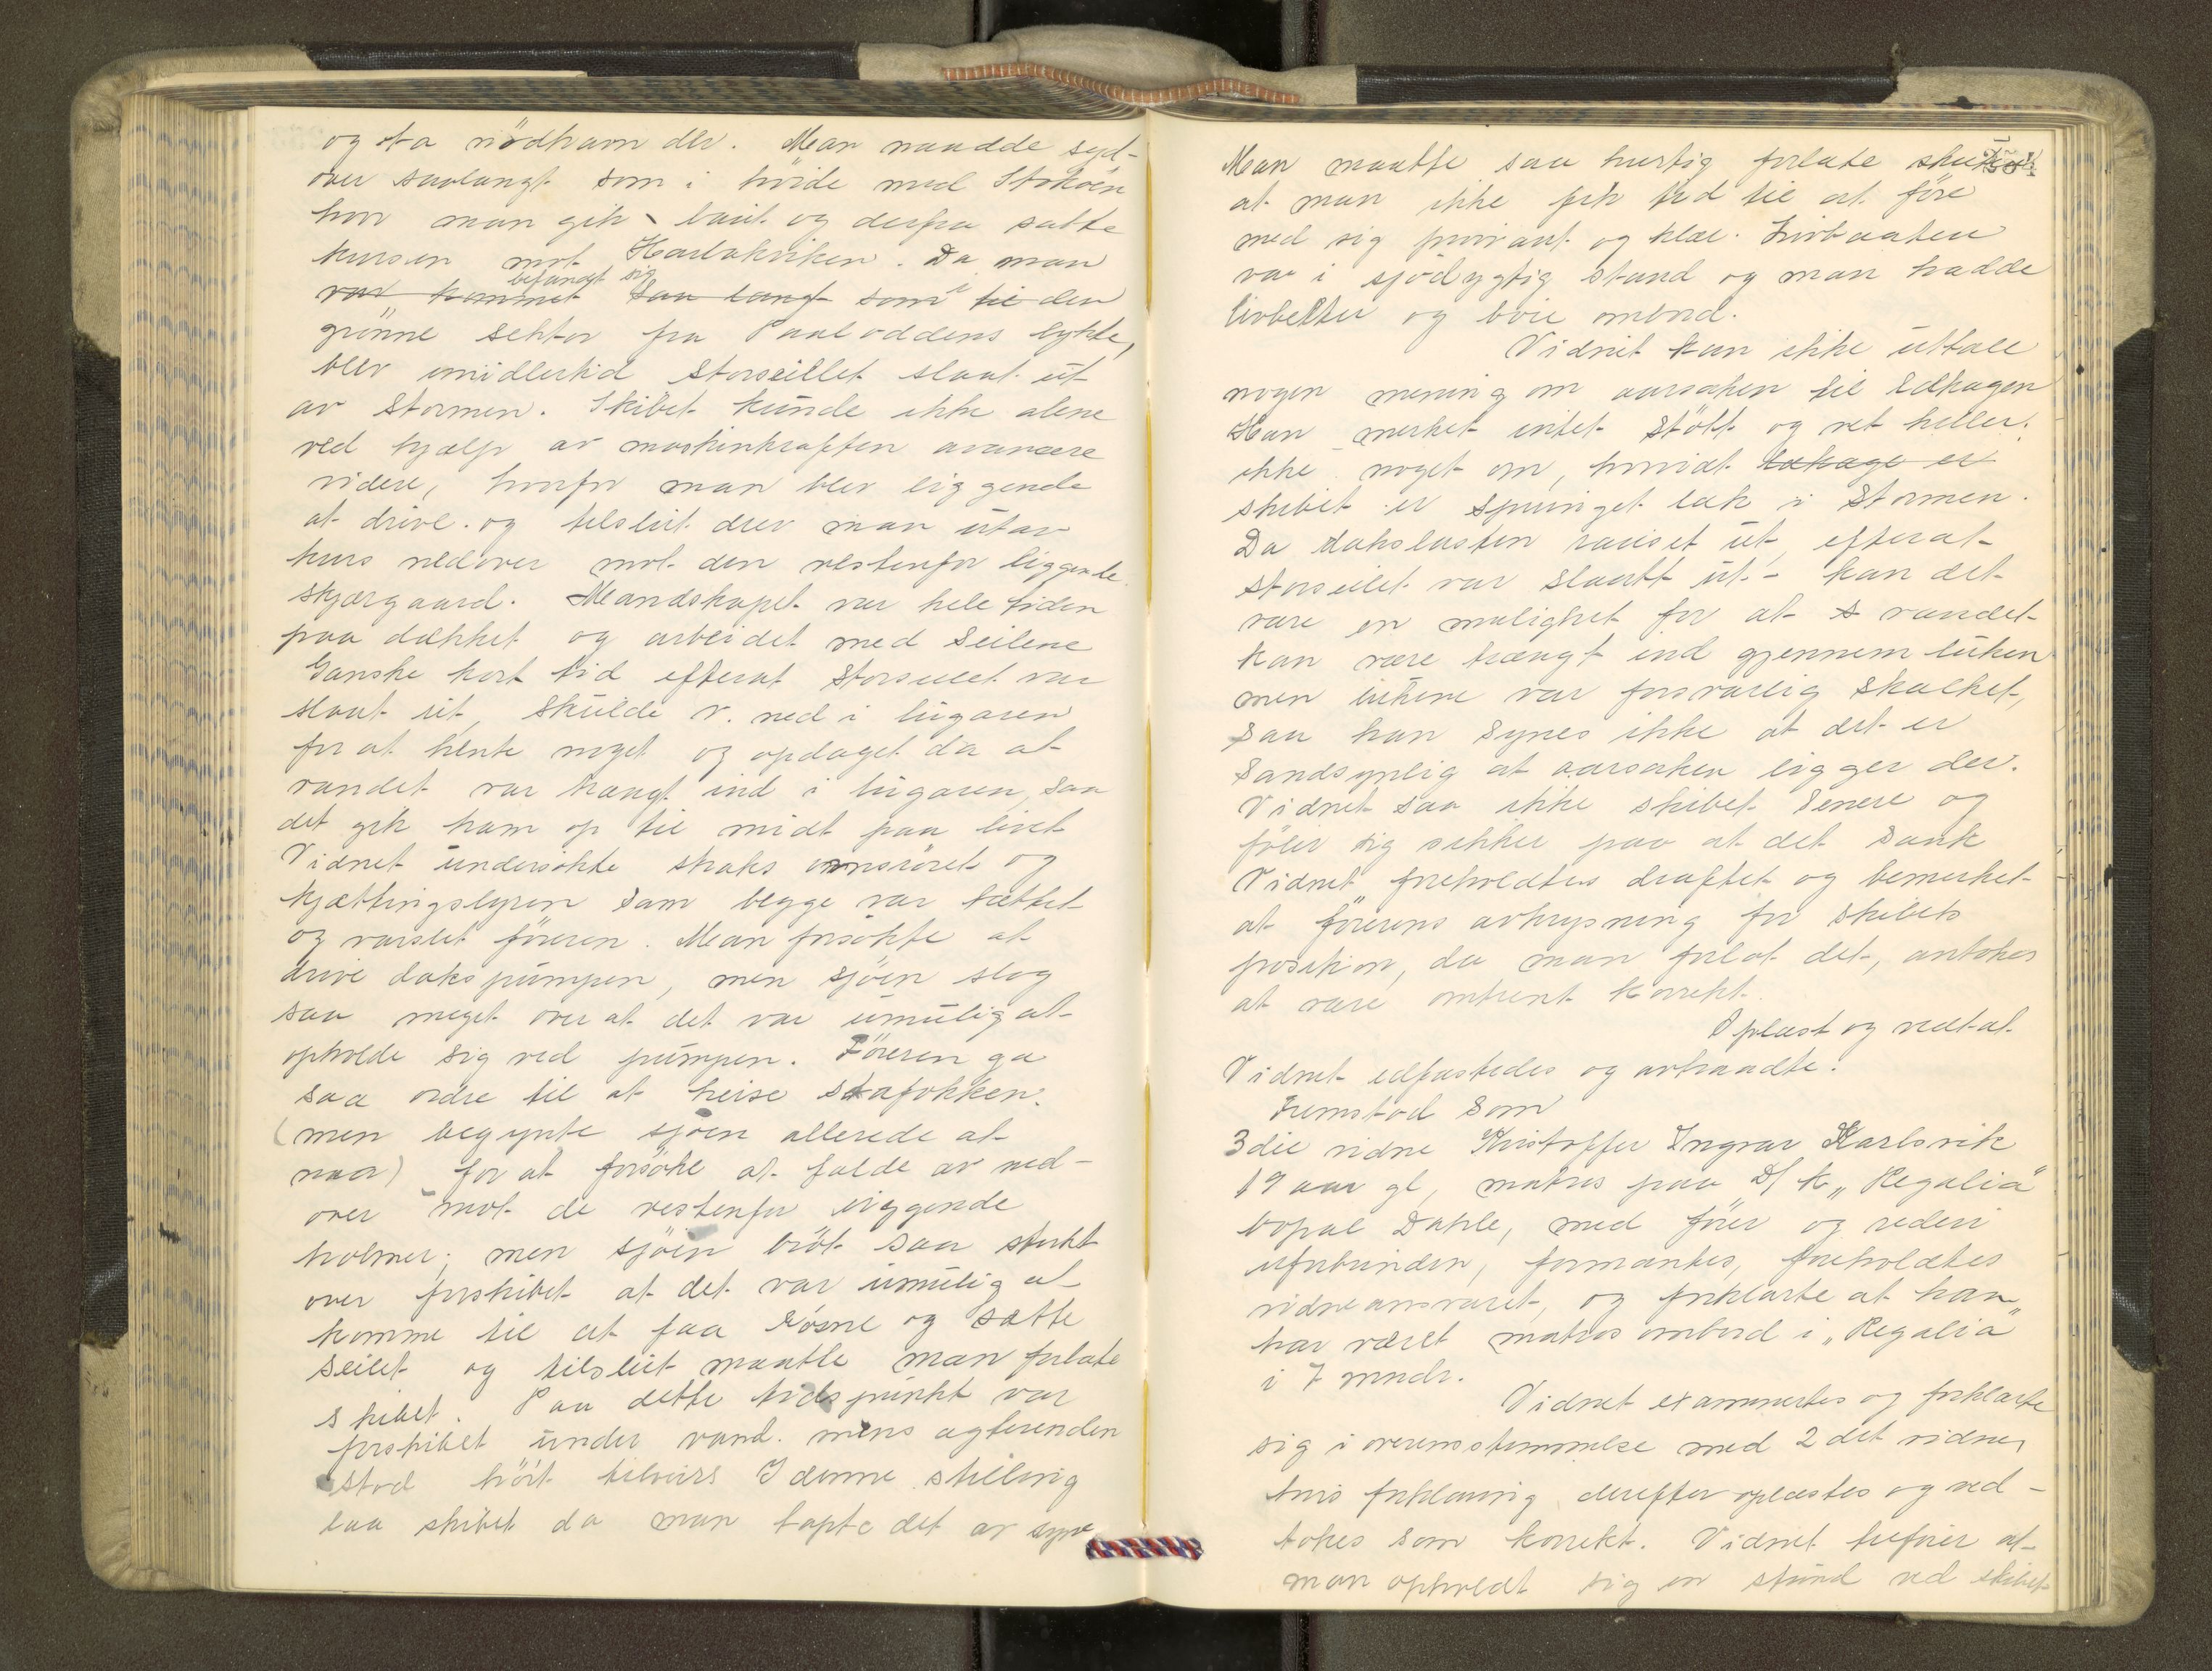 og ta nödhavn der. Man naadde syd-
over saalangt som i höide med Stokøen
hvor man gik baut og derfra satte
kursen mot Harbakviken. Da man
befandt sig i
var kommet saa langt som til den
grönne sektor fra Paul oddens lykte,
blev imidlertid storseillet slaat ut
av stormen. Skibet kunde ikke alene
ved hjælp av maskinkraften avancere
videre, hvorfor man blev liggende
at drive. og tilslut drev man utav
kurs nedover mot den vestenfor liggende
skjærgaard. Mandskapet var hele tiden
paa dækket og arbeidet med seilene
Ganske kort tid efterat storseilet var
slaat ut, skulde v. ned i lugaren
for at hente noget og opdaget da at
vandet var trængt ind i lugaren, saa
det gik ham op til midt paa livet
Vidnet undersökte straks ovnsröret og
kjættingslyren som begge var tættet
og varslet föreren. Man forsökte at
drive dækspumpen, men sjöen slog
saa meget over at det var umulig at
opholde sig ved pumpen. Föreren ga
saa ordre til at heise stafokken.
(men begynte sjöen allerede at
naa) for at forsöke at falde av ned-
over mot de vestenfor liggende
holmer; men sjöen bröt saa sterkt
over forskibet at det var umulig at
komme til at faa lösne og sætte
seilet og tilslut maatte man forlate
skibet. Paa dette tidspunkt var
forskibet under vand. mens agterenden
stod höit tilveirs I denne stilling
laa skibet da man tapte det av syne
Man maatte saa hurtig forlate skibet
at man ikke fik tid til at före
med sig proviant og klær. Livbaaten
var i sjödygtig stand og man hadde
livbelter og böie ombord.
Vidnet kan ikke uttale
nogen mening om aarsaken til lækagen
Han merket intet stöt og vet heller
ikke noget om, hvorvidt lækage er
skibet er sprunget læk i stormen.
Da dækslasten rauset ut, efterat
storseilet var slaatt ut - kan det
være en mulighet for at s vandet
kan være trængt ind gjennem luken
men lukene var forsvarlig skalket,
saa han synes ikke at det er
sandsynlig at aarsaken ligger der.
Vidnet saa ikke skibet senere og
föler sig sikker paa at det sank
Vidnet foreholdtes draftet og bemerket
at förerens avkrysning for skibets
position, da man forlot det, antokes
at være omtrent korrekt.
Oplæst og vedtat.
Vidnet edfæstedes og avtraadte.
Fremstod som
3die vidne Kristoffer Ingvar Karlsvik
19 aar gl, matros paa D/K "Regalia"
bopæl Dahle, med förer og rederi
uforbunden, formantes, foreholdtes
vidneansvaret, og forklarte at han
har været matros ombord i "Regalia"
i 7 mndr.
Vidnet examinertes og forklarte
sig i overensstemmelse med 2det vidne,
hvis forklaring derefter oplæstes og ved-
tokes som korrekt. Vidnet tilföier at
man opholdt sig en stund ved skibet